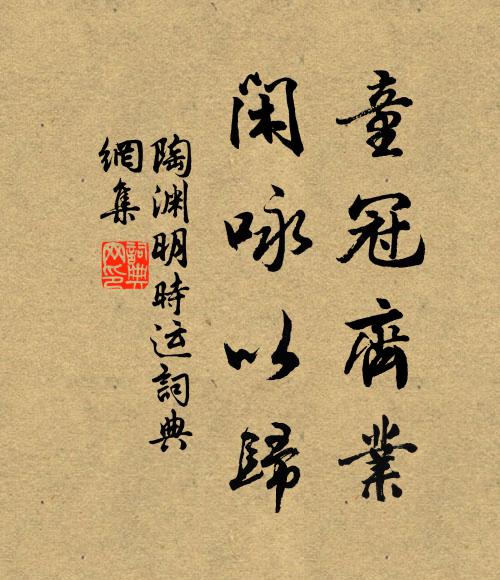 童冠齊業
閑咏以歸
陶渊明時运詞典
網集
詞典
网印